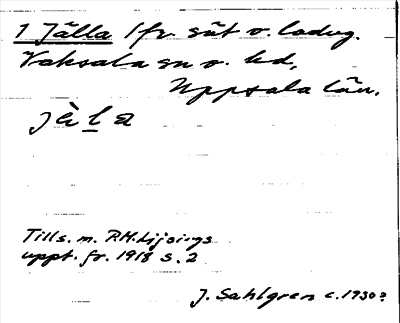 1 Jälla 1 fr. sät o. ladug.
Vaksala sn o. hd,
Uppsala län.
jèla
Tills. m. P.H. Lijsings
uppt. fr. 1918 s. 2
J. Sahlgren c. 1930?